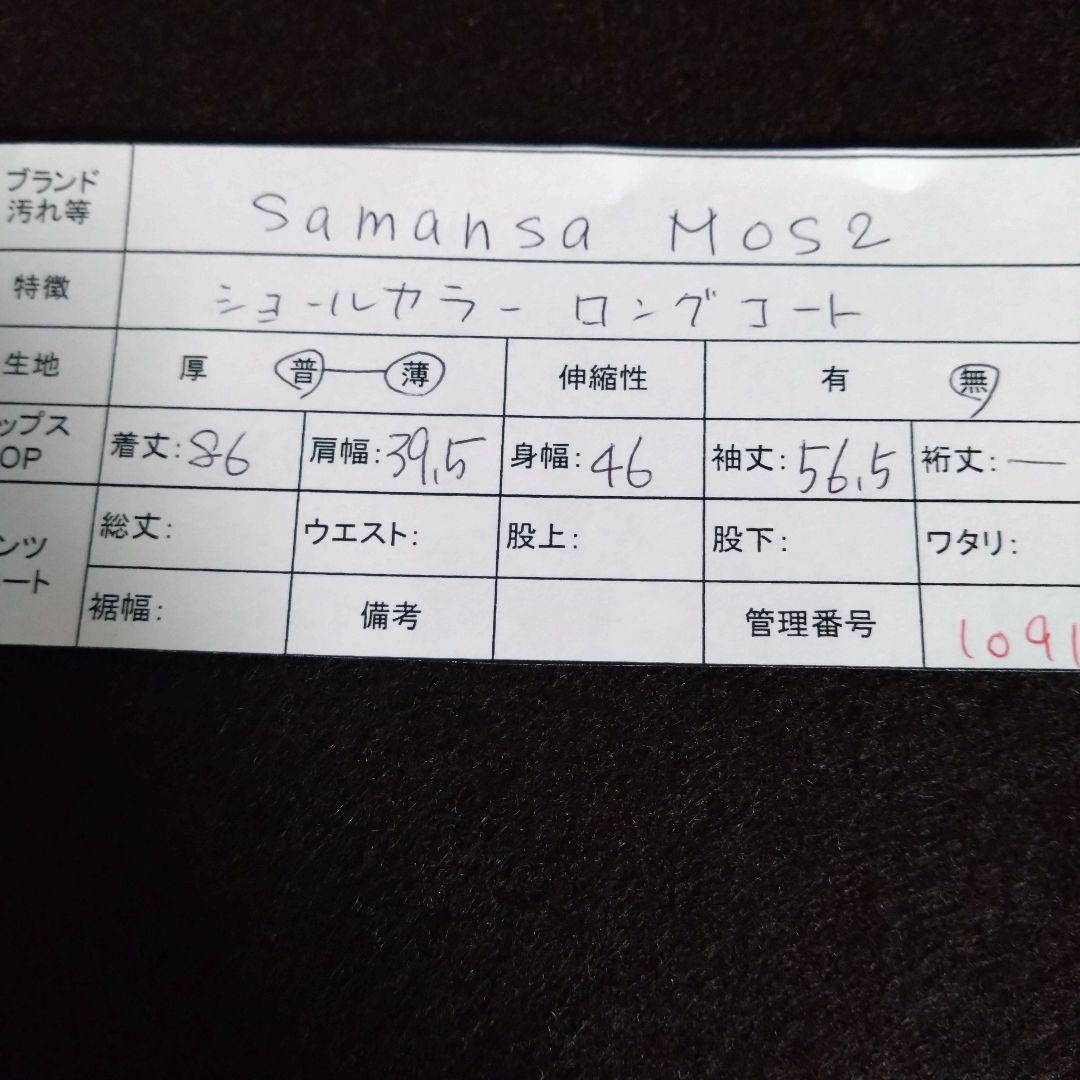 ブランド
汚れ等
Samansa MOS2
特徴
ショールカラー ロングコート
生地 厚 普 薄 伸縮性 有 無
ップス
OP
着丈:86 肩幅:39.5 身幅:46 袖丈:56.5 裄丈:—
ンツ
ート
総丈: ウエスト: 股上: 股下: ワタリ:
裾幅: 備考 管理番号 1091